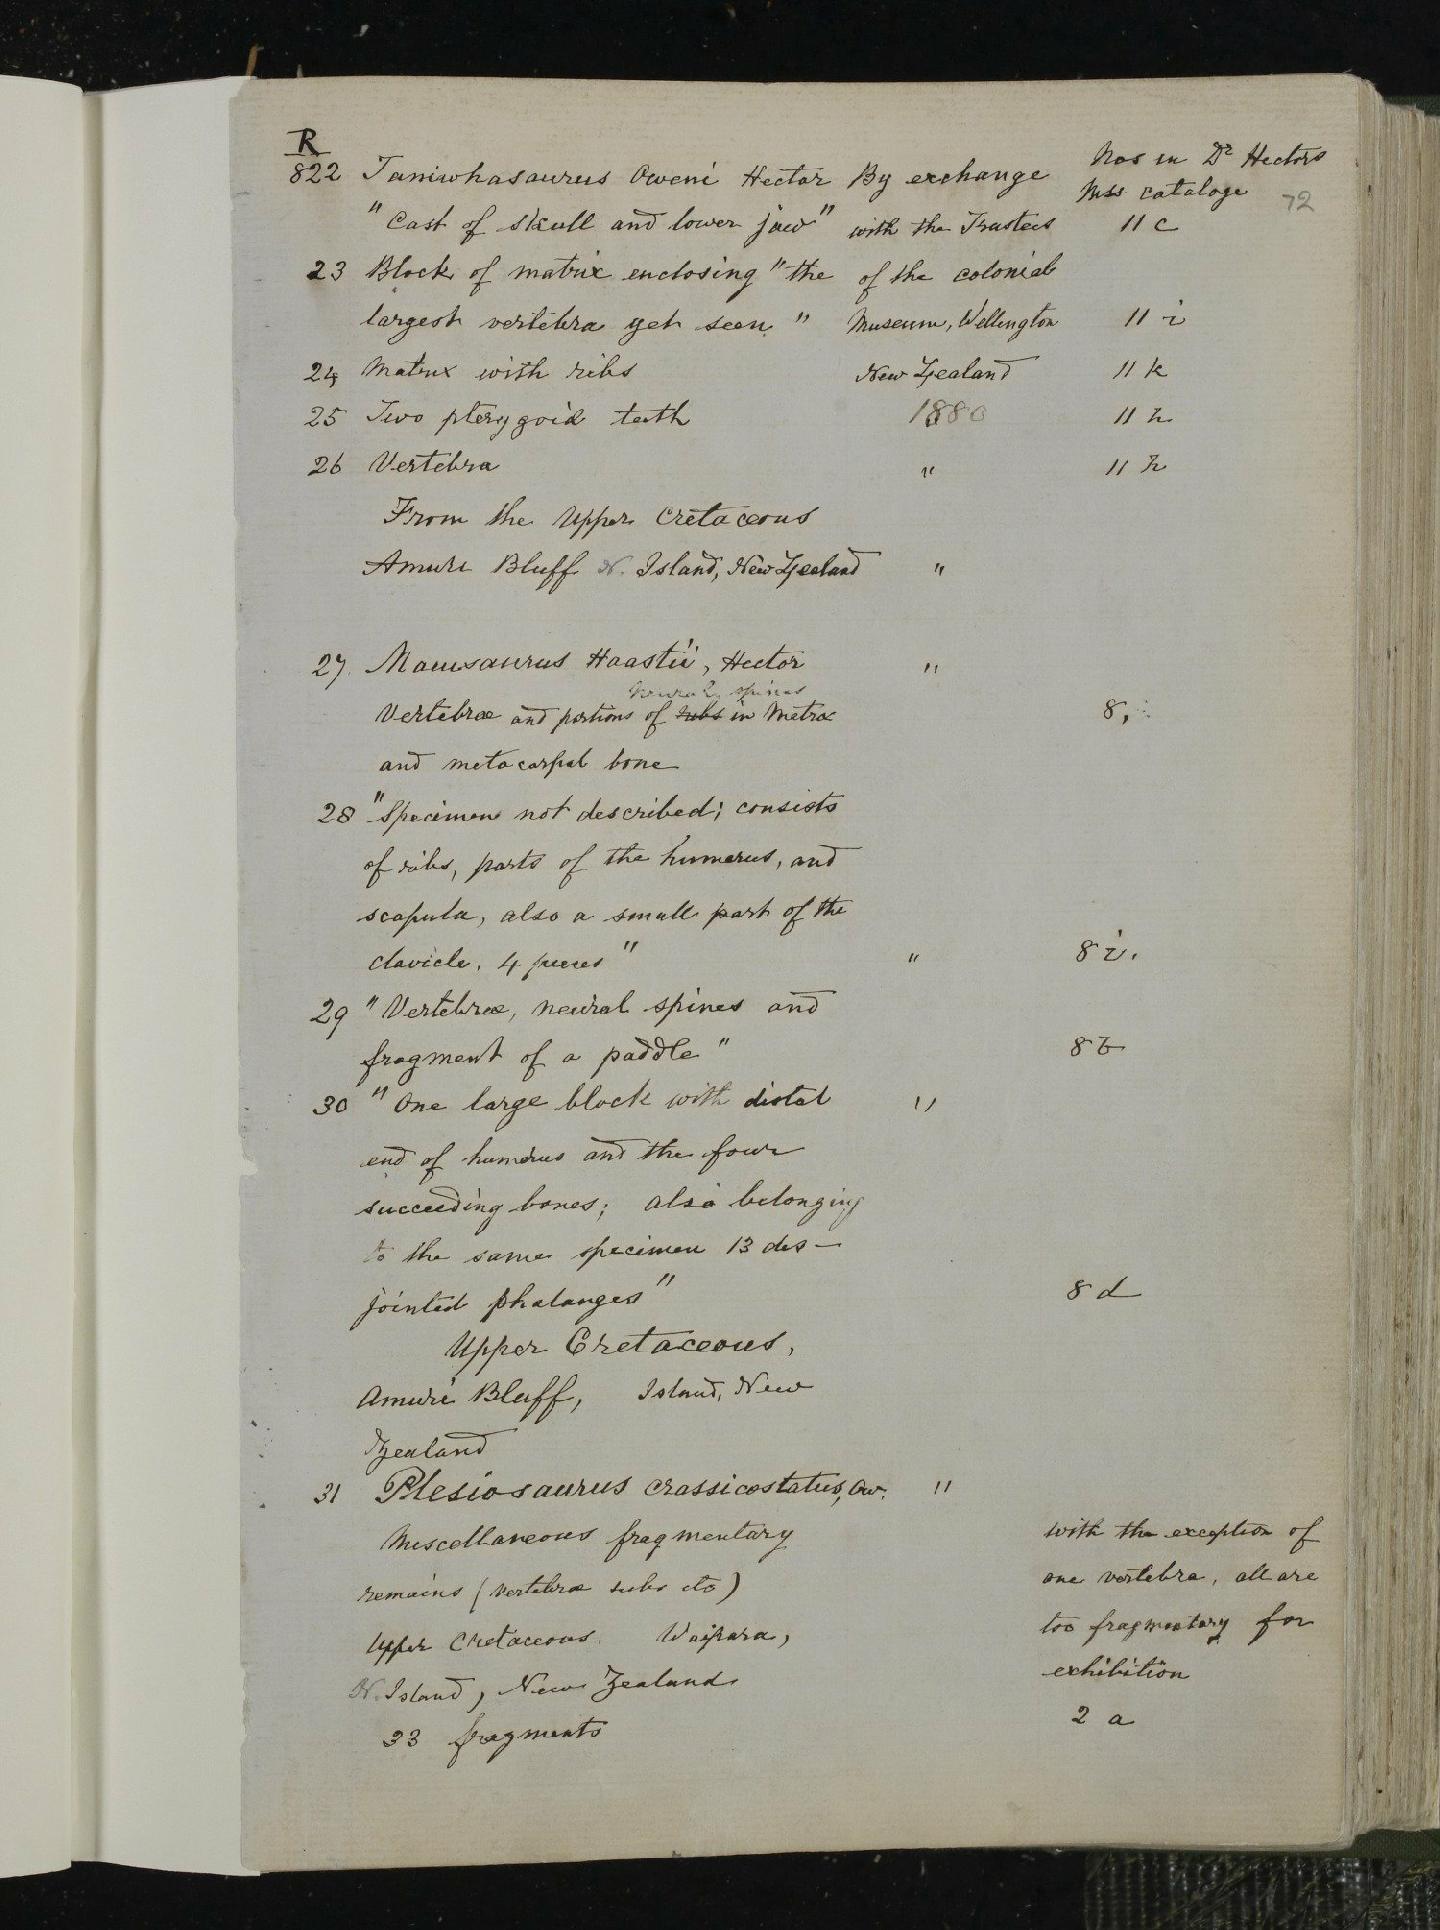 R
Nos in Dr Hectors
822 Taniwhasaurus Oweni Hector By exchange
Mss cataloge 72
"Cast of skull and lower jaw" with the Trustees 11 c
23 Block of matrix enclosing "the of the colonial
largest vertebra yet seen" Museum, Wellington 11 i
24 Matrix with ribs New Zealand 11 k
25 Two pterygoid teeth 1880 11 h
26 Vertebra " 11 h
From the Upper Cretaceous
Amuri Bluff N. Island, New Zealand "
27 Mauisaurus Haastii, Hector "
neural spines
Vertebræ and portions of ribs in Metrix 8,
and metacarpal bone
28 "Specimen not described; consists
of ribs, parts of the humerus, and
scapula, also a small part of the
clavicle. 4 pieces" " 8 i.
29 "Vertebræ, neural spines and
fragment of a paddle" 8 b
30 "One large block with distal "
end of humerus and the four
succeeding bones; also belonging
to the same specimen 13 des-
jointed phalanges" 8 d
Upper Cretaceous,
Amuri Bluff, Island, New
Zealand
31 Plesiosaurus crassicostatus, Ow. "
Miscellaneous fragmentary with the exception of
remains (vertebræ etc) one vertebra, all are
Upper Cretaceous. Waipara, too fragmentary for
N. Island, New Zealand exhibition
33 fragments 2 a